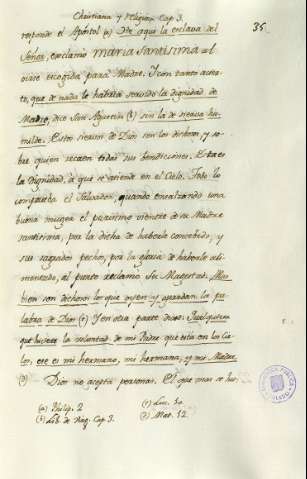 Christiana y religion Cap. 3.
35.
responde el Apóstol (a) He aqui la esclava del
Señor, exclamó Maria Santisima al
oirse escogida para Madre. Y con tanto acier-
to, que de nada le habria servido la dignidad de
Madre, dice San Agustin (b) sin la de sierva hu-
milde. Estos siervos de Dios son los dichosos, y so-
bre quien recaen todas sus bendiciones. Esta es
la Dignidad, á que se atiende en el Cielo. Todo lo
comprueba el Salvador, quando ensalzando una
buena muger el purisimo vientre de su Madre
santisima, por la dicha de haberle concebido, y
sus sagrados pechos, por la gloria de haberle ali-
mentado, al punto exclamó Su Magestad. Mas
bien son dichosos los que oyen y guardan la pa-
labra de Dios Y en otra parte dice: Qualquiera
que hiciere la voluntad de mi Padre que está en los Cie-
los, ese es mi hermano, mi hermana, y mi Madre
Dios no acepta personas. El que mas se hu-
(a) Philip. 2
Luc.
Lib. de Virg. Cap. 3.
Mat. 12.